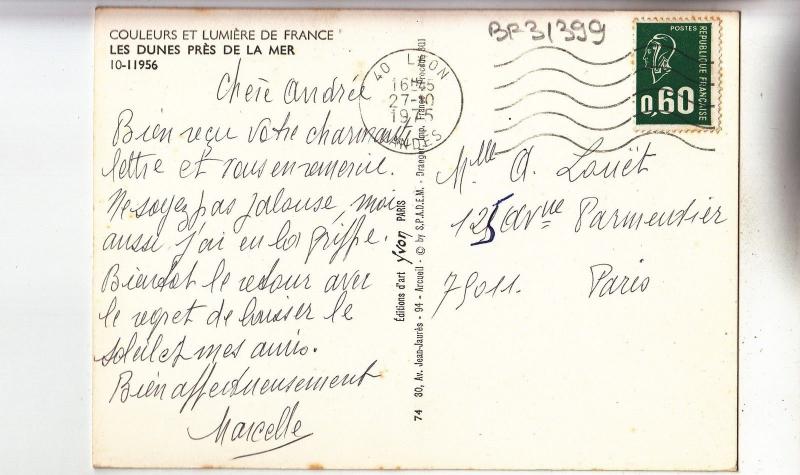 COULEURS ET LUMIÈRE DE FRANCE
LES DUNES PRÈS DE LA MER
10-11956
Chère Andrée
Bien reçu votre charmante
lettre et vous en remercie.
Ne soyez pas jalouse, moi
aussi j'ai eu la grippe.
Bientôt le retour avec
le regret de laisser le
soleil et mes amis.
Bien affectueusement
Marcelle
Éditions d'art Yvon PARIS
74 30, Av. Jean-Jaurès - 94 - Arcueil - © by S.P.A.D.E.M. - Draeger Imp. France
40 LÉON
27-10
LANDES
BP31399
POSTES
RÉPUBLIQUE FRANÇAISE
0,60
Mlle A. Louët
125 Avnue Parmentier
75011. Paris